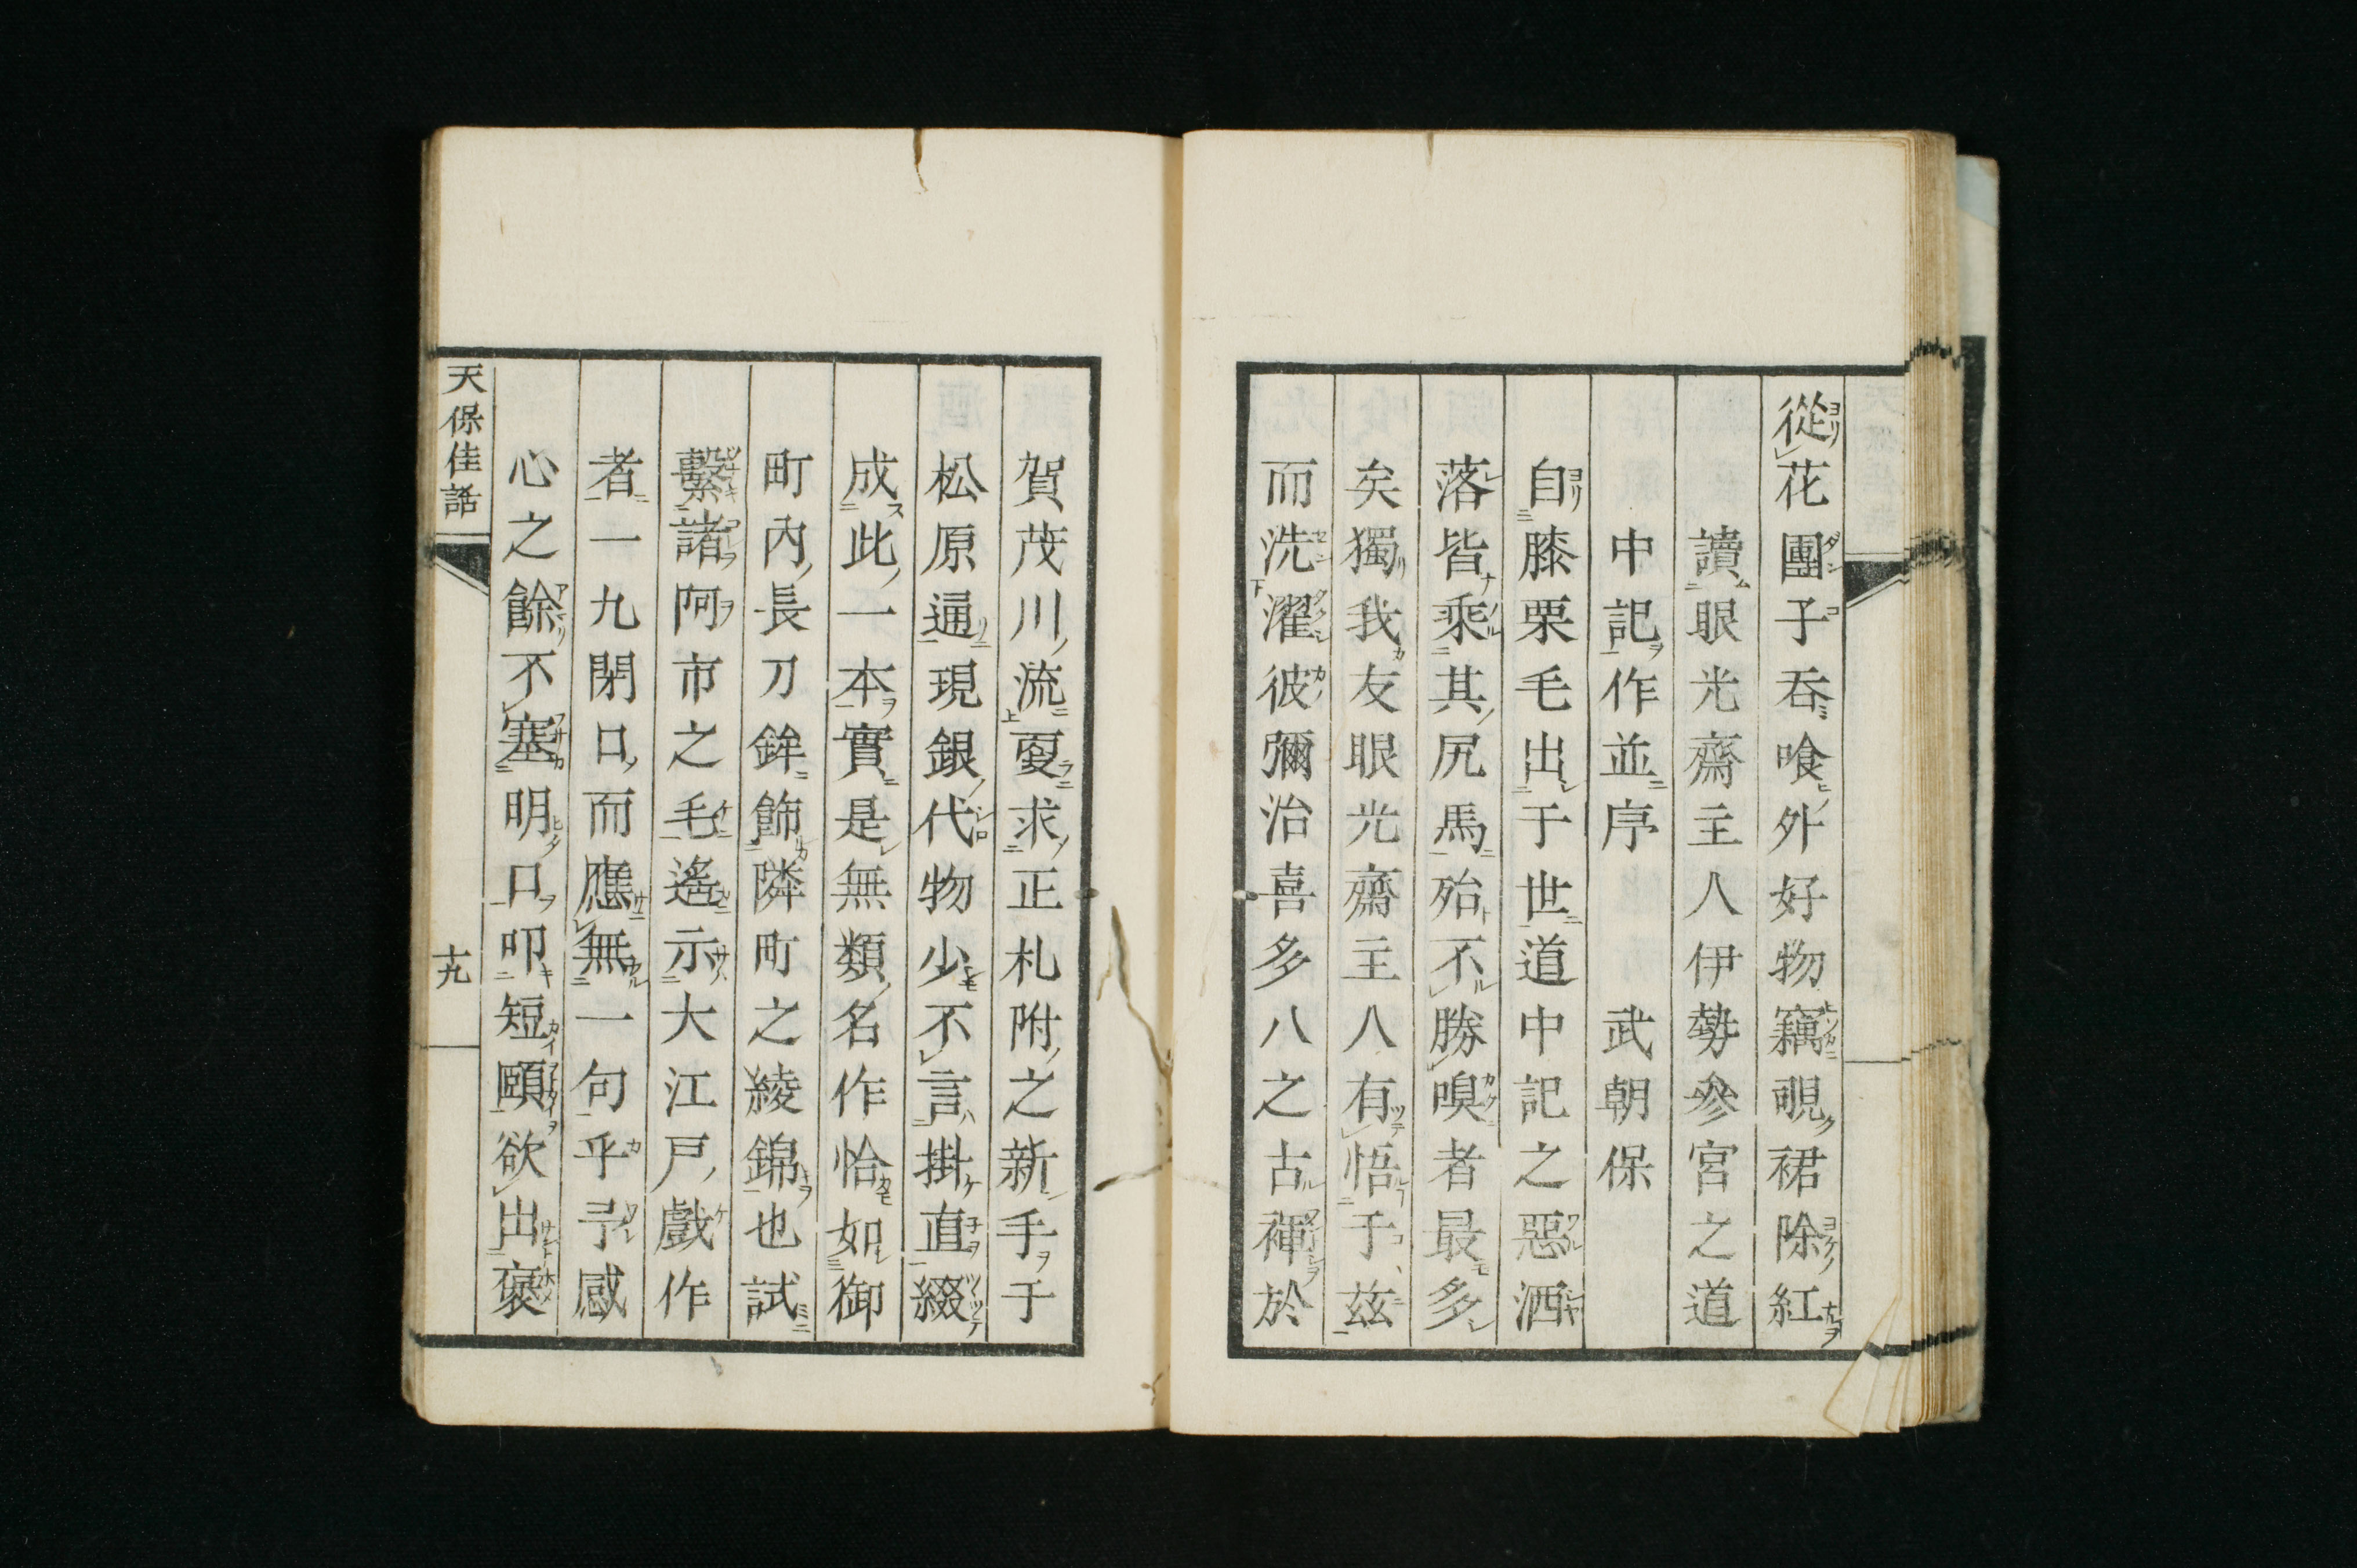 從花團子呑喰外好物竊覗裙除紅
讀眼光齋主人伊勢參宮之道
中記作並序　武朝保
自膝栗毛出于世道中記之惡洒
落皆乘其尻馬殆不勝嗅者最多
矣獨我友眼光齋主人有悟于茲
而洗濯彼彌治喜多八之古褌於
賀茂川流更求正札附之新手于
松原通現銀代物少不言掛直綴
成此一本實是無類名作恰如御
町内長刀鉾飾隣町之綾錦也試
繫諸阿市之毛遙示大江戸戲作
者一九閉口而應無一句乎予感
心之餘不塞明口叩短頤欲出褒
天保佳話
十九